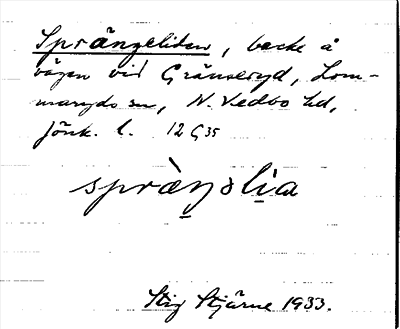 Sprängeliden, backe å
vägen vid Gränseryd, Lom-
maryds sn, N. Vedbo hd,
Jönk. l. 12 G 35
spràŋəlia
Stig Stjärne 1933.